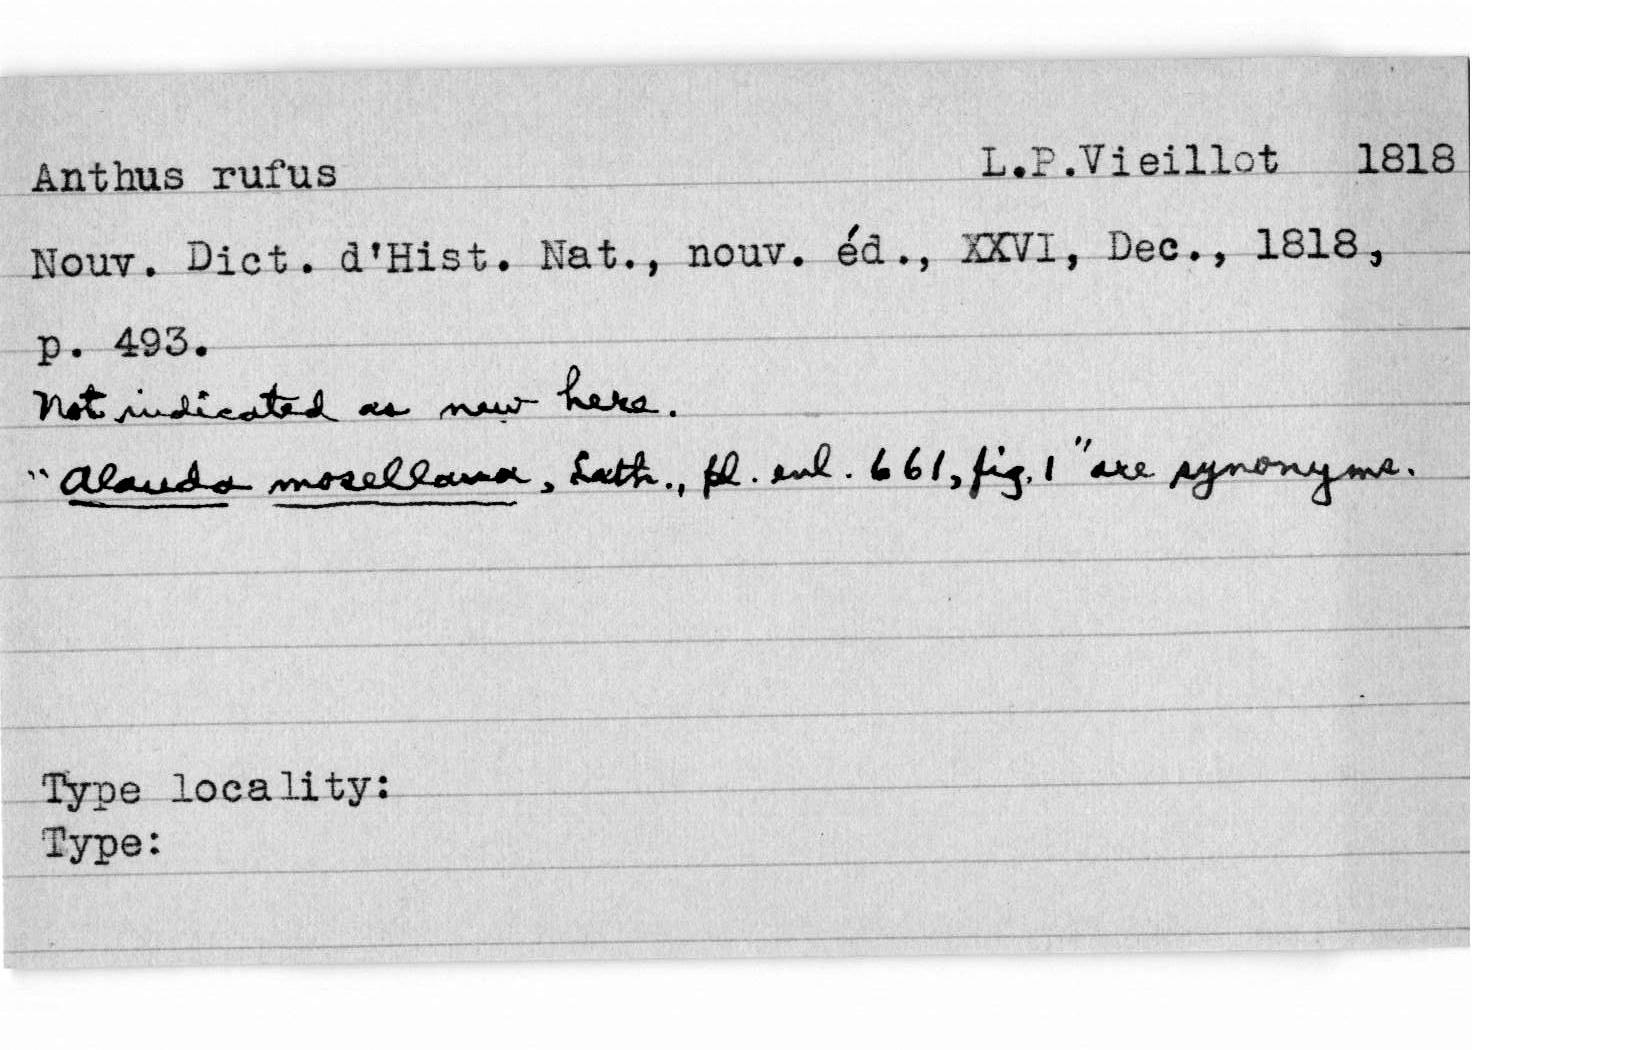 Anthus rufus L.P.Vieillot 1818
Nouv. Dict. d'Hist. Nat., nouv. éd., XXVI, Dec., 1818,
p. 493.
Not indicated as new here.
"Alauda mosellana, Lath., pl. enl. 661, fig. 1" are synonyms.
Type locality:
Type: